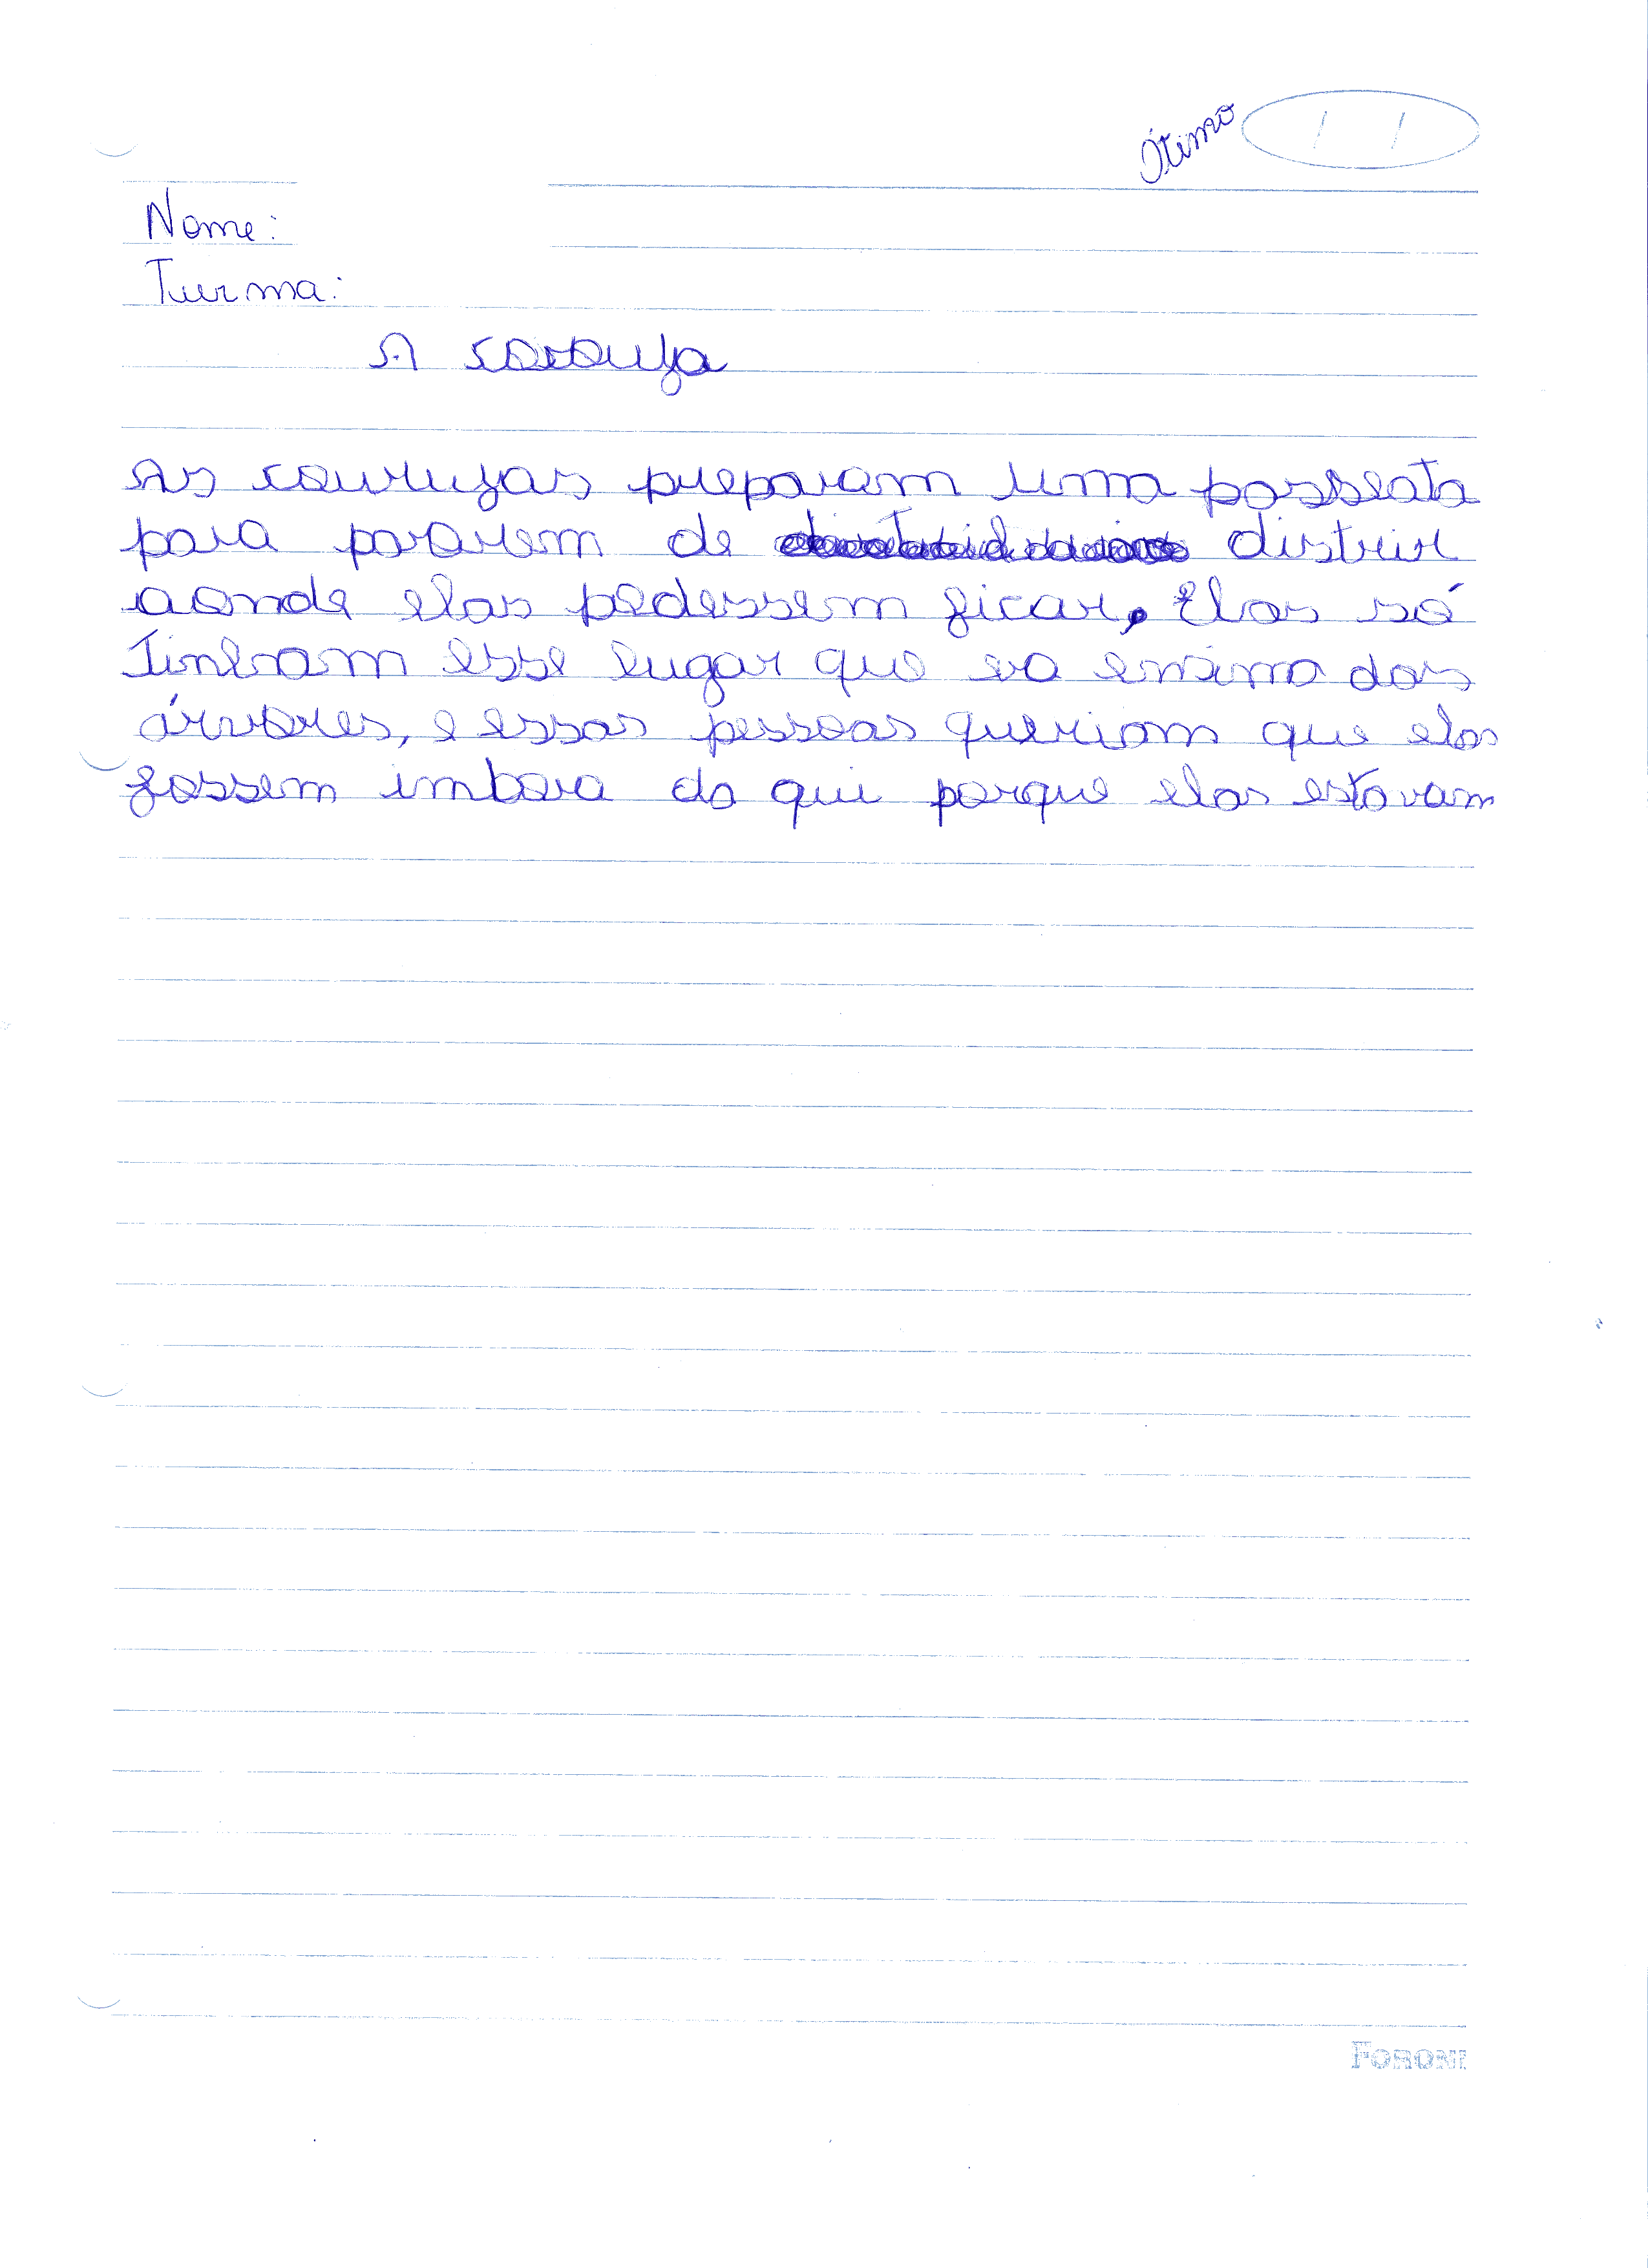 Ótimo
Nome:
Turma:
A corouja
As courujas preparam uma passeata
para pararem de distruir
aonde elas pedessem ficar. Elas só
Tinham esse lugar que era emsima das
árvores, e essas pessoas queriam que elas
fossem imbora da qui porque elas estavam
FORONI